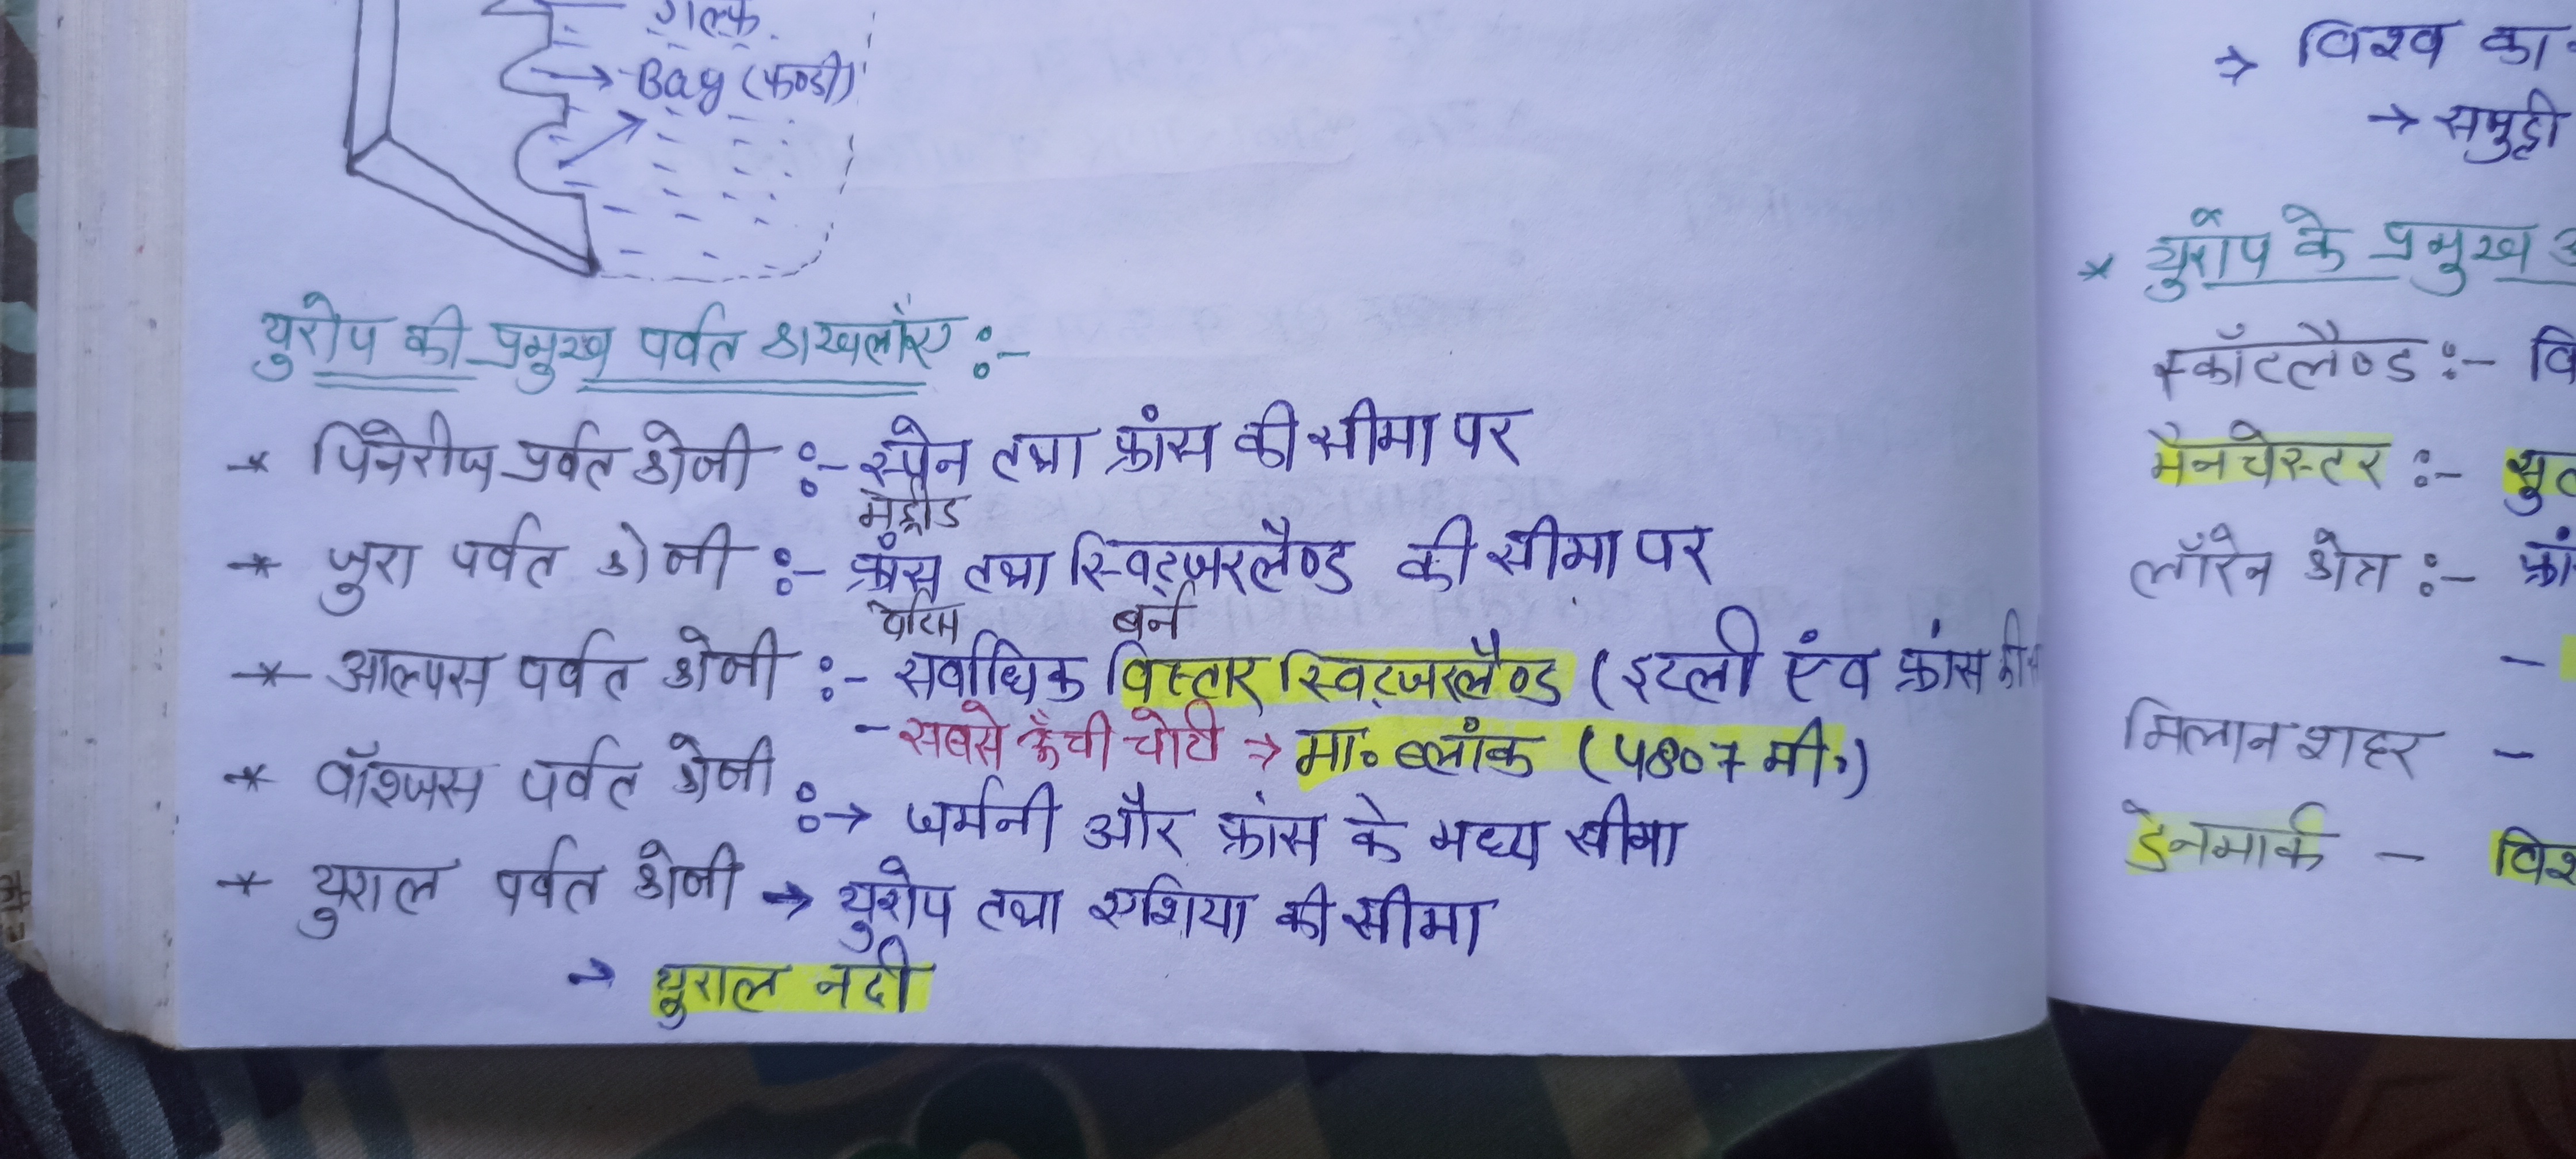 गल्फ.
Bay (खाड़ी)
युरोप की प्रमुख पर्वत श्रखलाएं :-
* पिनेरीज पर्वत श्रेणी :- स्पेन तथा फ्रांस की सीमा पर
मेड्रीड
* जुरा पर्वत श्रेणी :- फ्रांस तथा स्विट्ज़रलैण्ड की सीमा पर
पेरिस बर्न
* आल्पस पर्वत श्रेणी :- सर्वाधिक विस्तार स्विट्जरलैण्ड (इटली एंव फ्रांस
- सबसे ऊँची चोटी → मा॰ ब्लांक (4807 मी॰)
* वॉश्जस पर्वत श्रेणी :→ जर्मनी और फ्रांस के मध्य सीमा
* युराल पर्वत श्रेणी → युरोप तथा एशिया की सीमा
→ युराल नदी
→ विश्व का
→ समुद्री
* युरोप के प्रमुख
स्कॉटलैण्ड :- वि
मैनचेस्टर :- सुत
लॉरेन क्षेत्र :- फ्रां
-
मिलान शहर -
डेनमार्क - विश